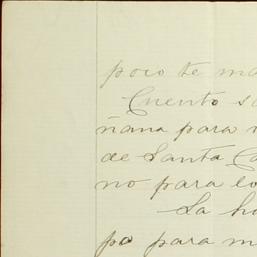 poco te ma
Cuento sa
ñana para
de Santa Ca
no para lo
La ho
po para m